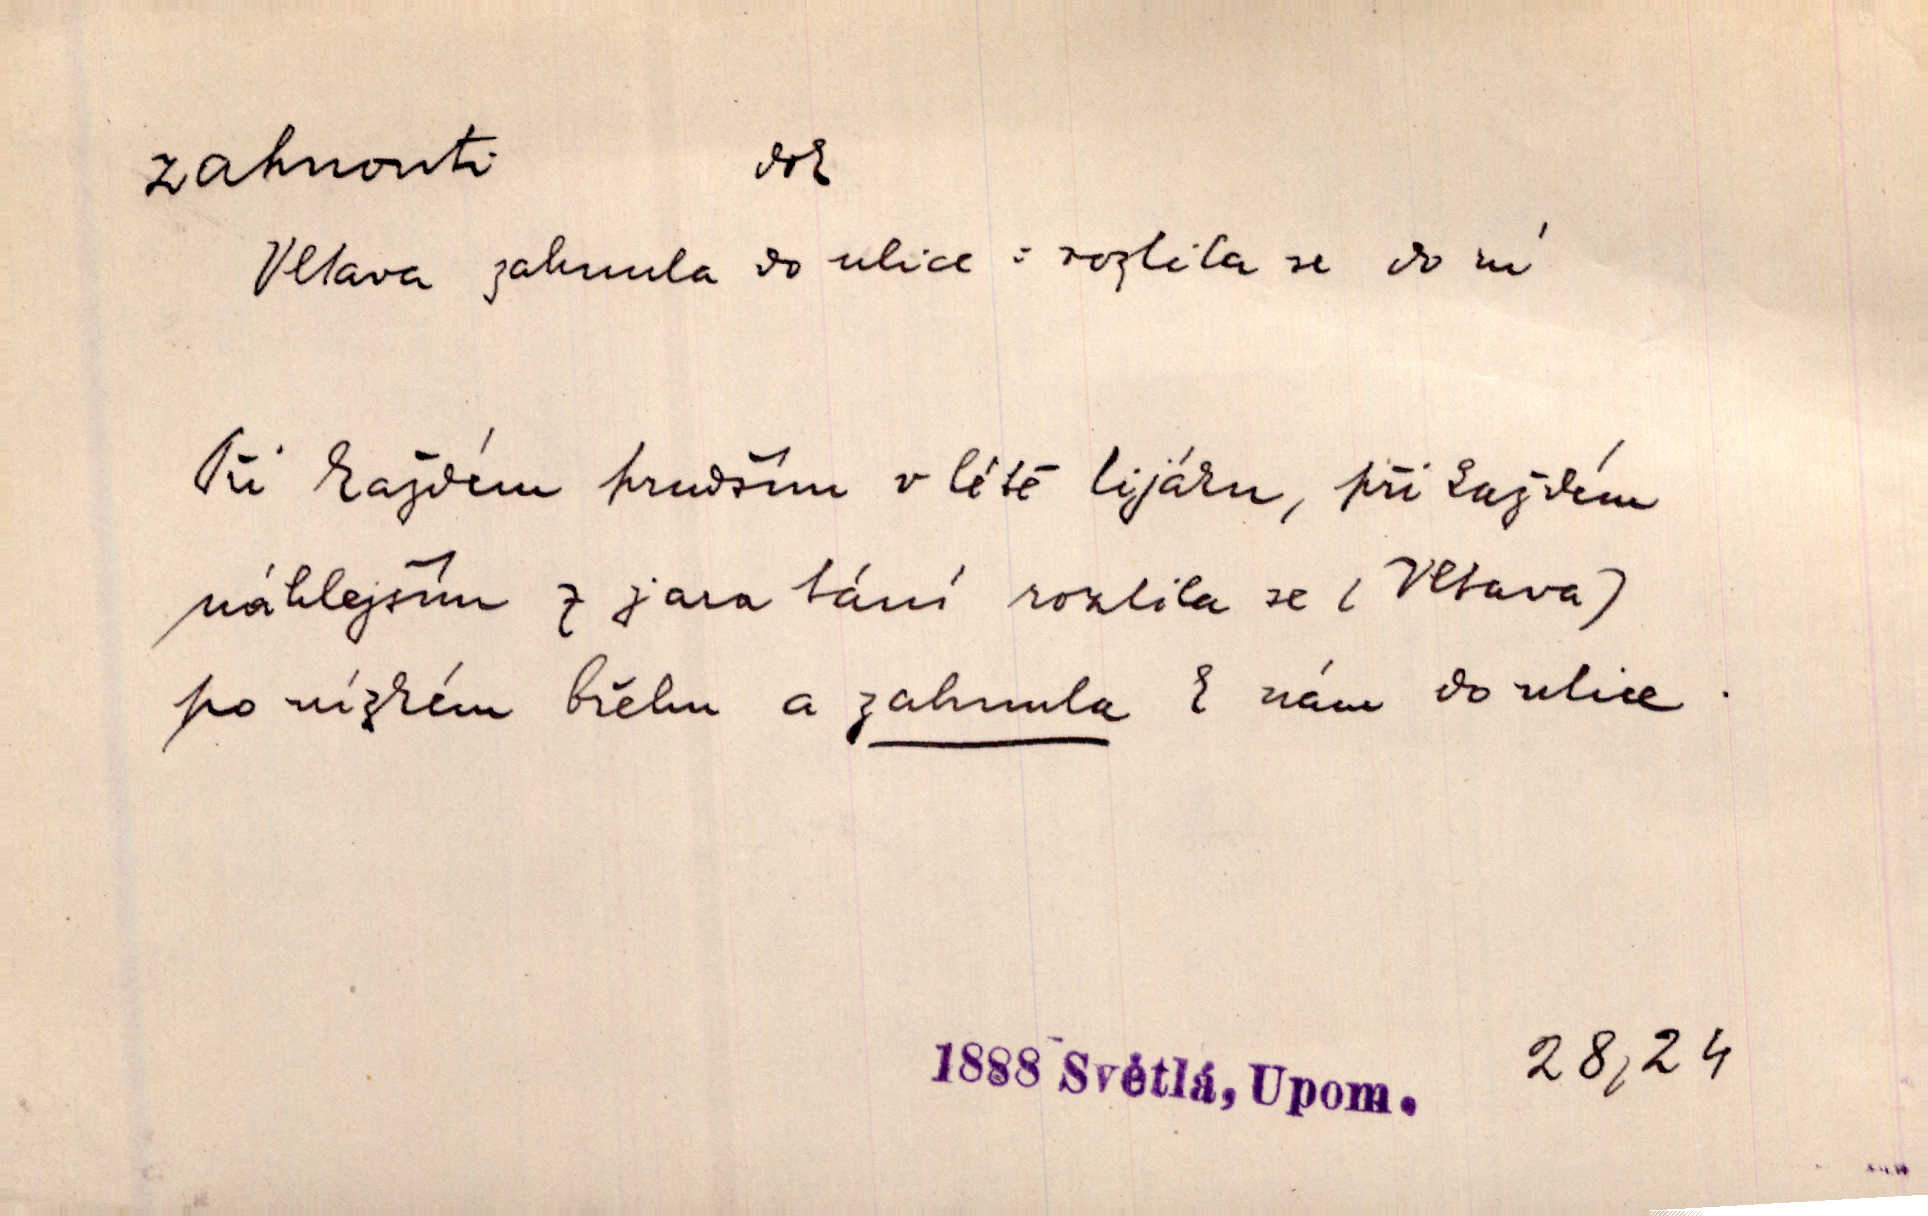 zahnouti dok
Vltava zahnula do ulice : rozlila se do ní
Při každém prudším v létě lijáku, při každém
náhlejším z jara tání rozlila se (Vltava)
po nízkém břehu a zahnula k nám do ulice.
1888 Světlá, Upom. 28,24